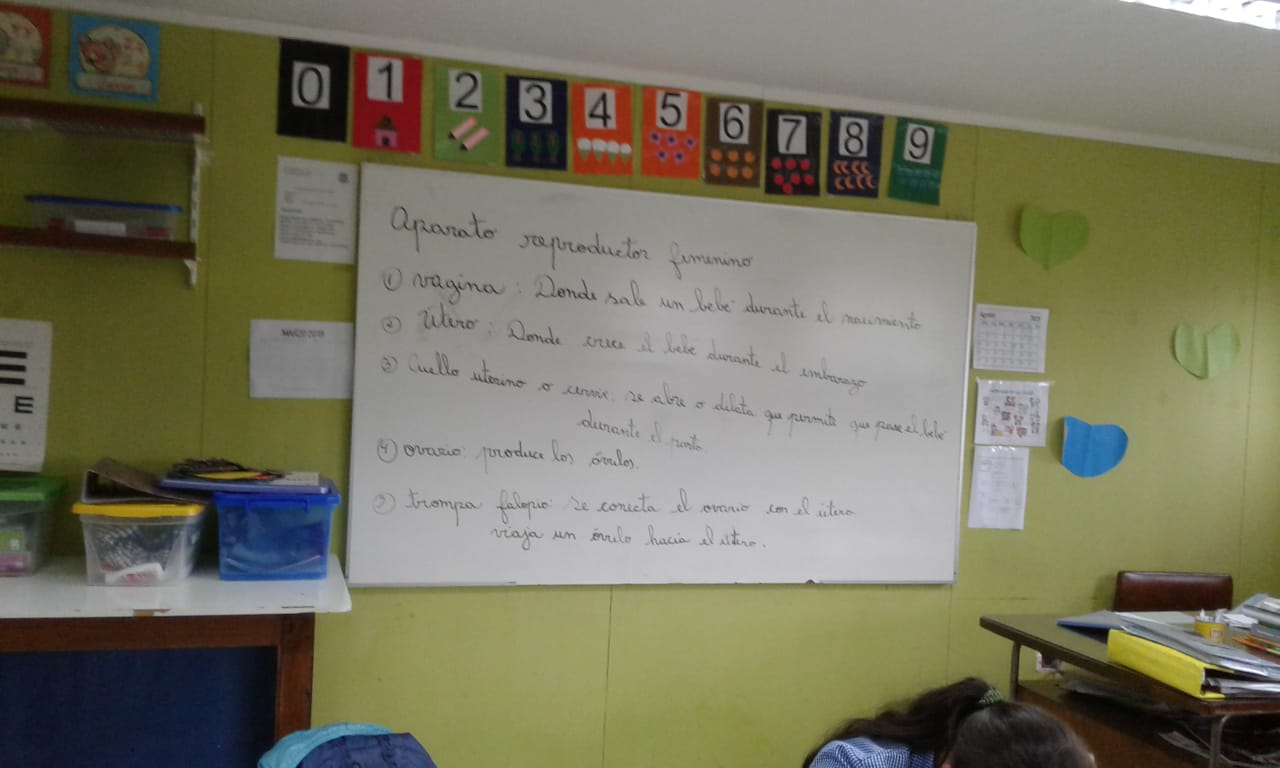 0 1 2 3 4 5 6 7 8 9
Aparato reproductor femenino
① vagina: Donde sale un bebé durante el nacimiento
② Útero: Donde crece el bebé durante el embarazo
③ Cuello uterino o cervix: se abre o dilata que permite que pase el bebé
durante el parto.
④ ovario: produce los óvulos.
⑤ trompa falopio: se conecta el ovario con el útero.
viaja un óvulo hacia el útero.
MARZO 2019
Agosto
E